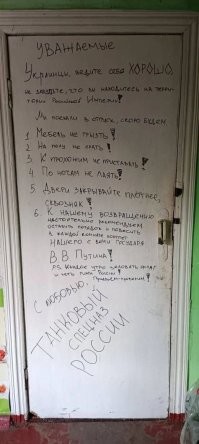 УВАЖАЕМЫЕ
Украинцы ведите себя ХОРОШО,
не забудьте, что вы находитесь на терри-
тории Российской Империи!
Мы поехали в отпуск, скоро будем.
1 Мебель не грызть!
2 На полу не срать!
3 К прохожим не приставать!
4 По ночам не лаять!
5 Двери закрывайте плотнее,
сквозняк!
6. К нашему возвращению
настоятельно рекомендуем
оставить погадок и повесить
в каждой комнате портрет
НАШЕГО с вами Государя
ВВ Путина!
P.S. Каждое утро целовать
и петь гимн России!
С любовью.
ТАНКОВЫЙ
СПЕЦНАЗ
РОССИИ